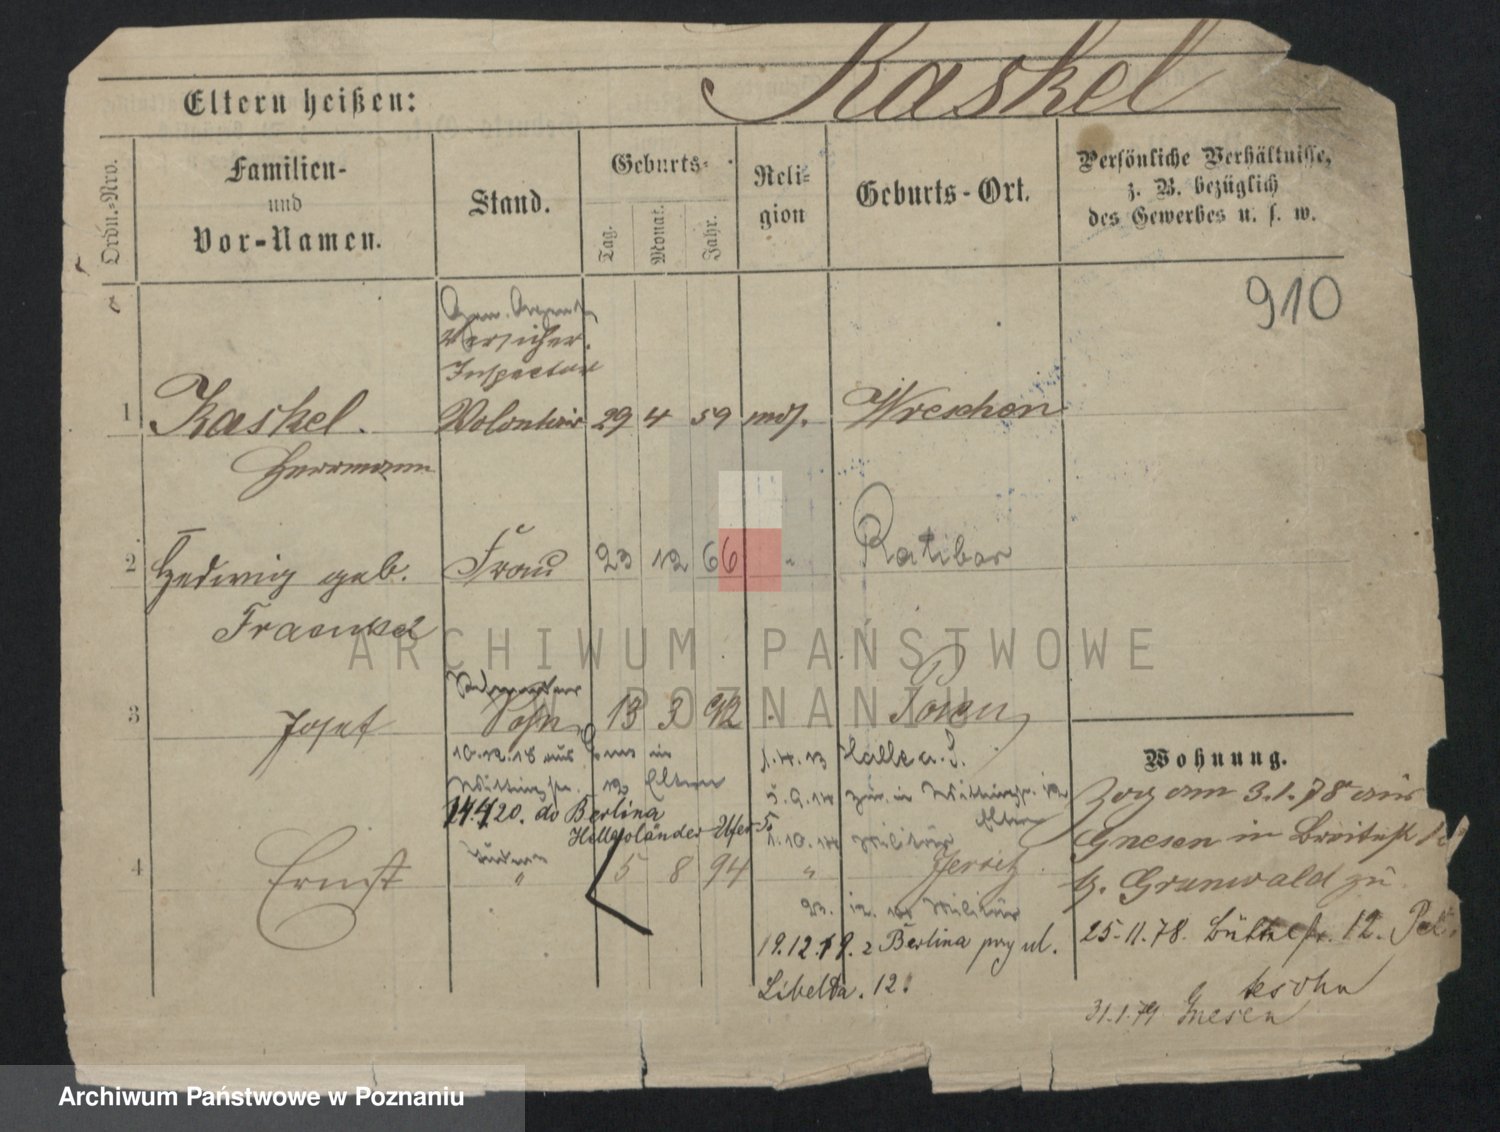 Kaskel
Eltern heißen:
Ordn.-Nro.
Familien-
und
Vor-Namen.
Stand.
Geburts-
Tag.
Monat.
Jahr.
Reli-
gion
Geburts-Ort.
Persönliche Verhältnisse,
z. B. bezüglich
des Gewerbes u. s. w.
910
Versicher.
Inspector
1 Kaskel. Volontair 29 4 59 mos. Wreschen
Herrmann
2 Hedwig geb. Frau 23 12 66 " Ratibor
Fraenkel
3 Josef Sohn 13 3 92 Posen
10.12.18 aus in
Eltern
14.4.20. do Berlina
Helgoländer-Ufer 5
1.4.13 Halle a. S.
5.9.14 zur. in
Eltern
1.10.14 Militär
4 Ernst " 5 8 94 " Jersitz
23. 12. 14 Militär
19.12.19. z Berlina przy ul.
Libelta. 12.
Wohnung.
Zog am 3.1.78 aus
Gnesen in Breitestr
b. Grunwald zu
25.11.78. Büttelstr. 12.
31.1.79 Gnesen
ARCHIWUM PAŃSTWOWE
W POZNANIU
Archiwum Państwowe w Poznaniu